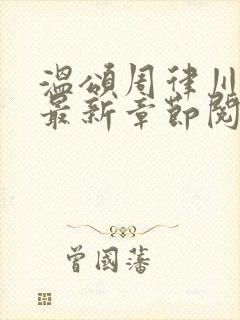 温颂周律川
最新章节阅
曾國藩